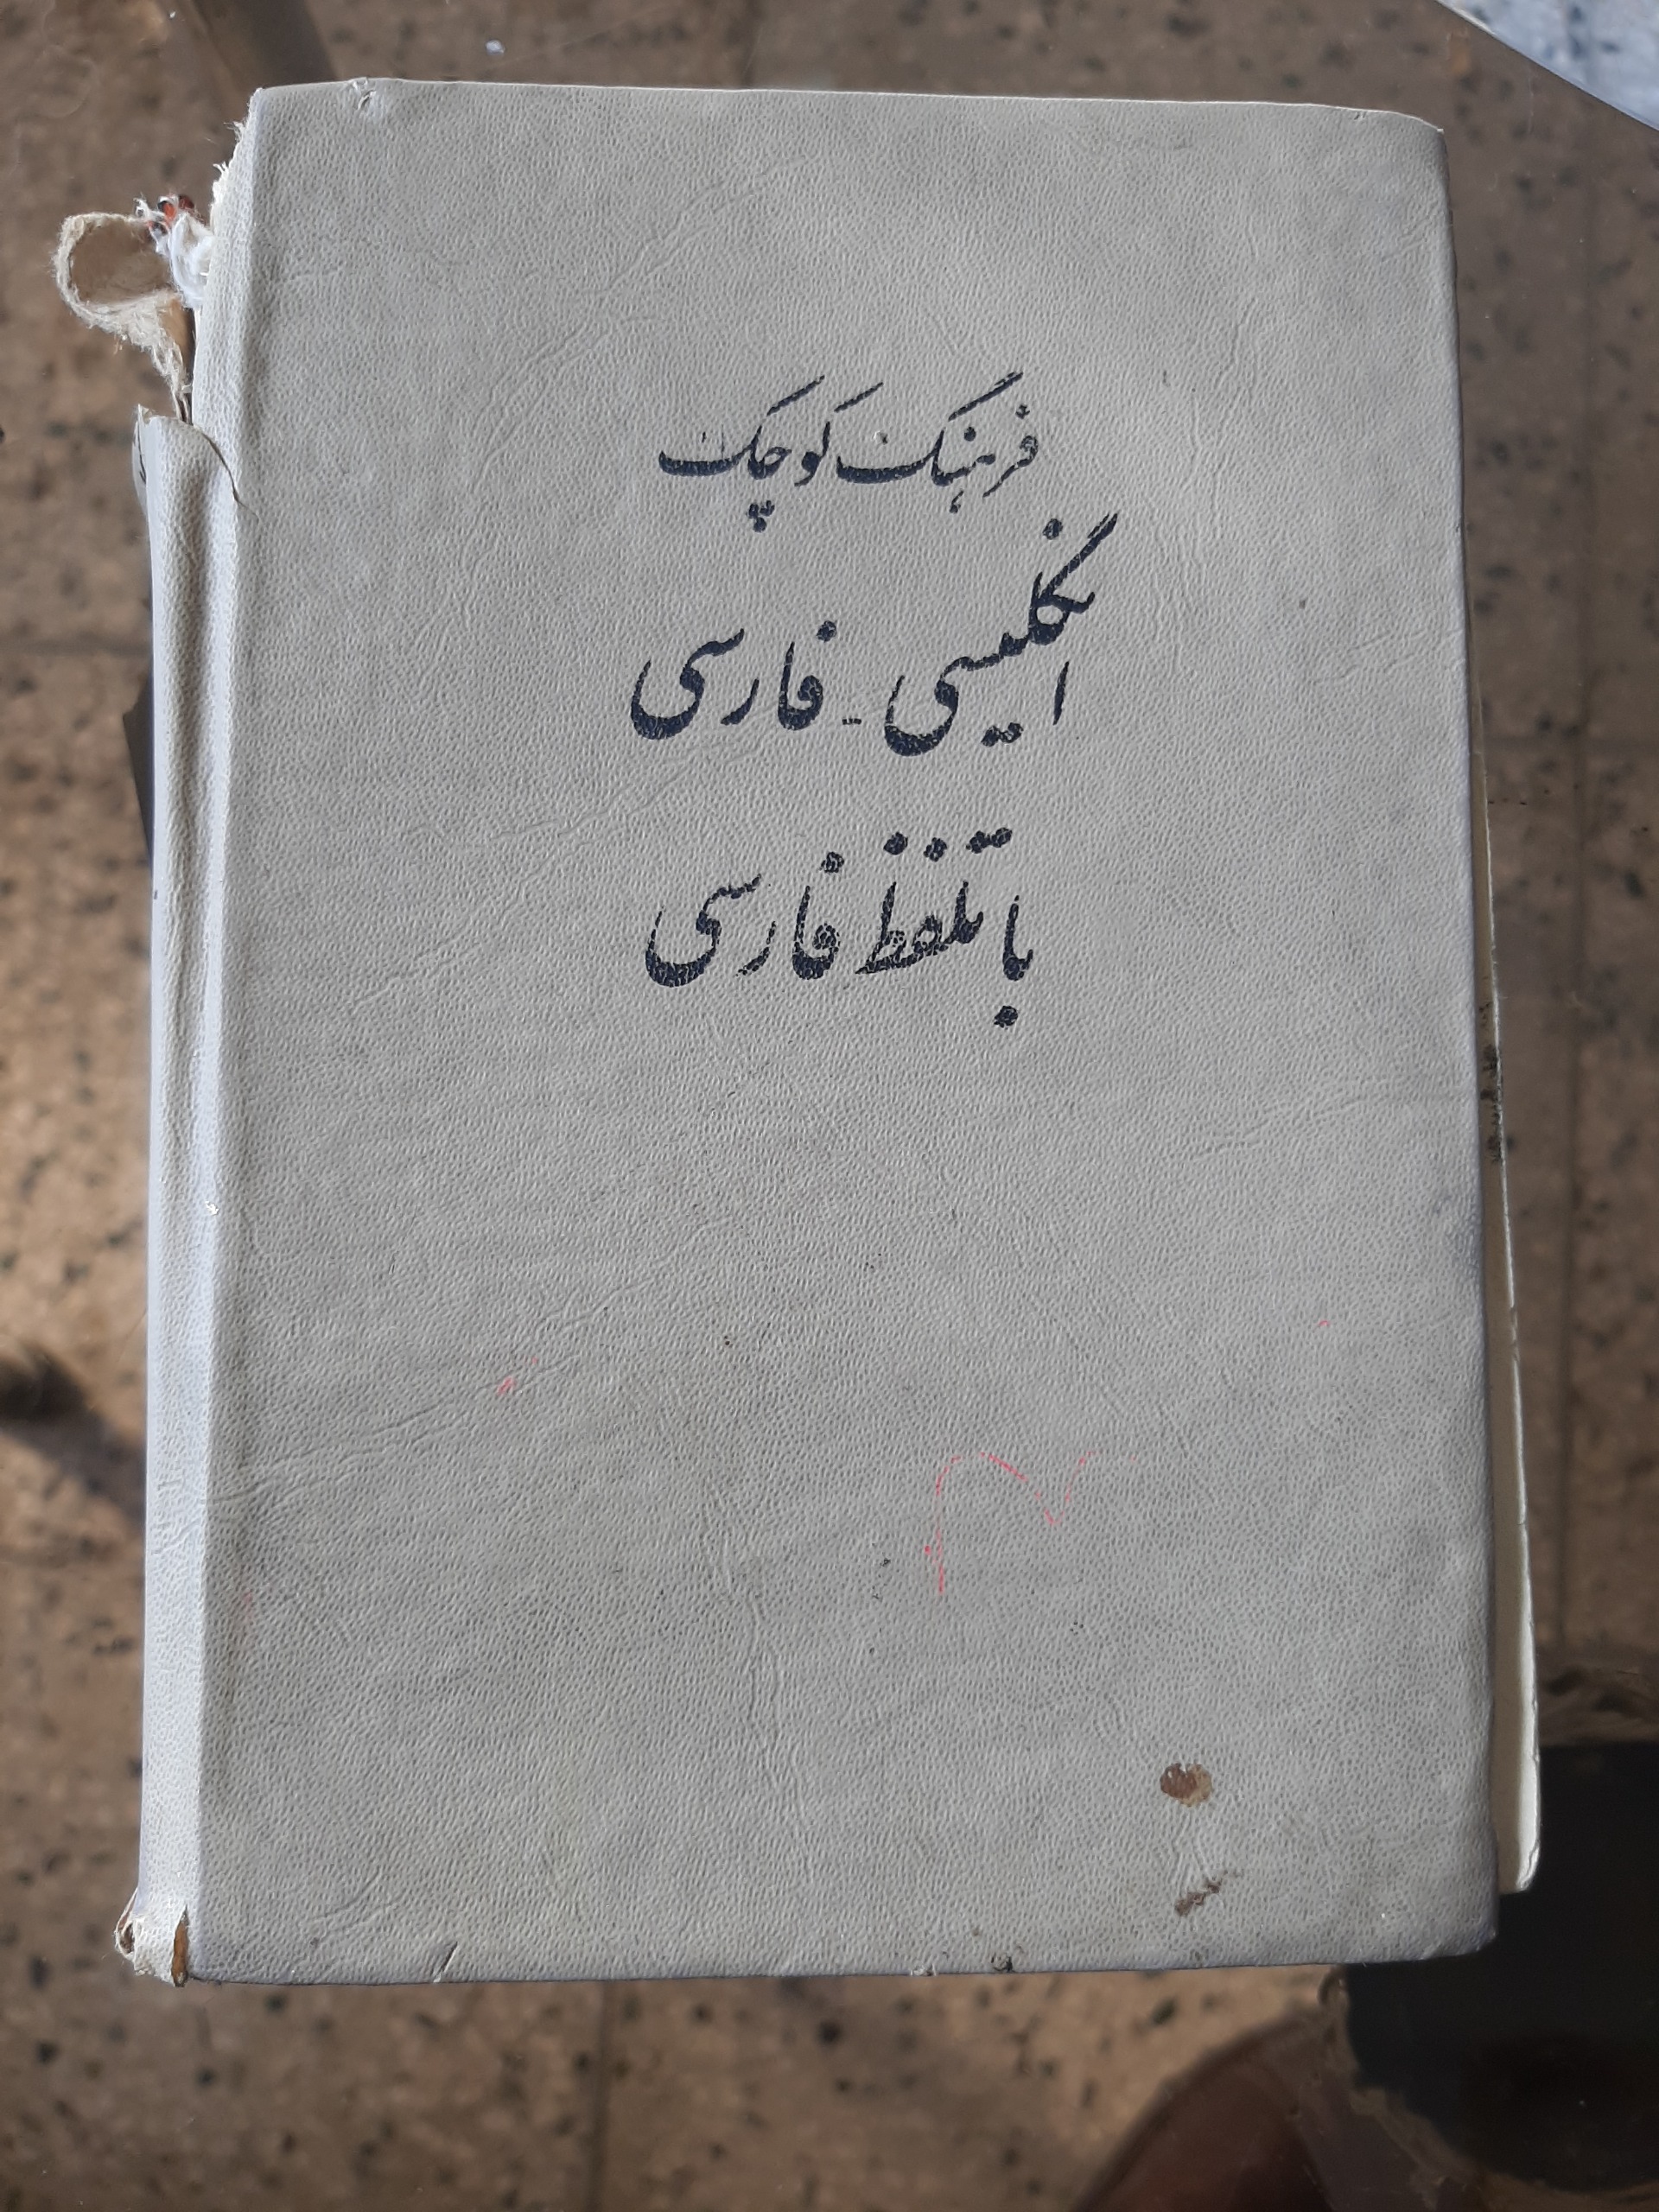 فرهنگ کوچک
انگلیسی - فارسی
با تلفظ فارسی